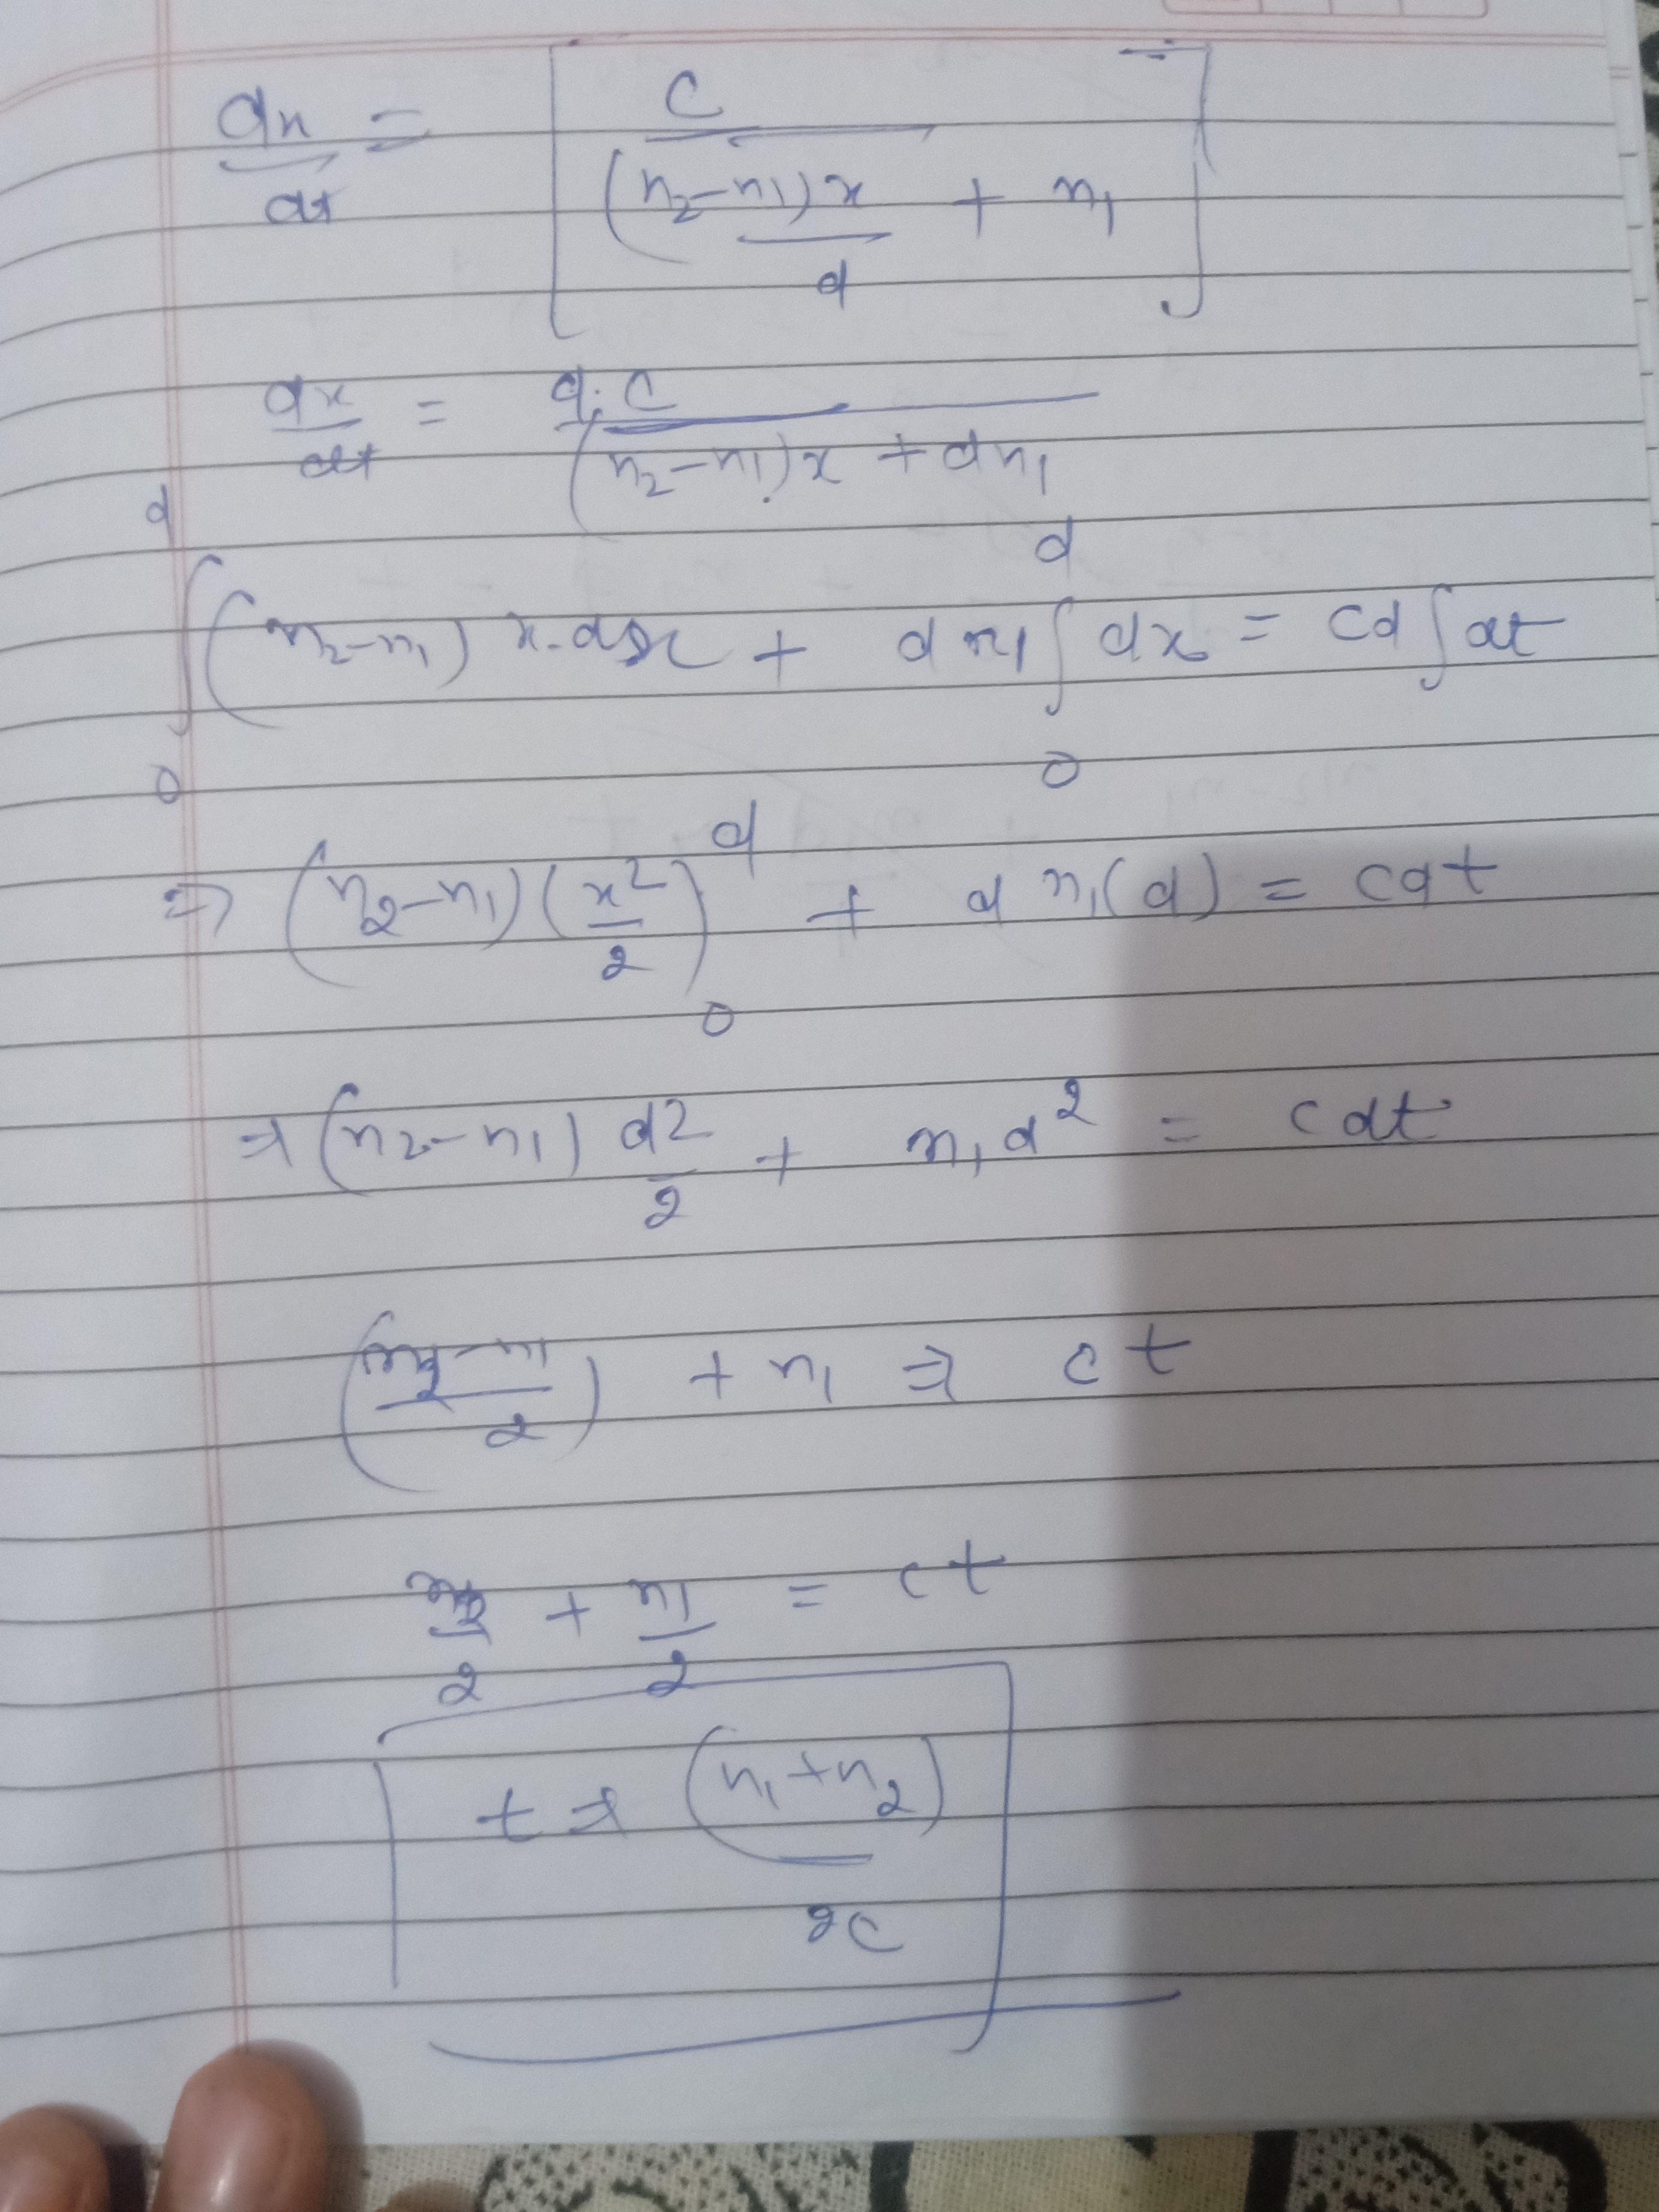 dx/dt = [ c / ((n₂-n₁)x/d + n₁) ]
dx/dt = d.c / ((n₂-n₁)x + dn₁)
∫₀ᵈ (n₂-n₁) x.dx + d n₁ ∫₀ᵈ dx = cd ∫ dt
⇒ (n₂-n₁) (x²/2)₀ᵈ + d n₁(d) = cdt
⇒ (n₂-n₁) d²/2 + n₁d² = cdt
(n₂-n₁/2) + n₁ ⇒ ct
n₂/2 + n₁/2 = ct
t ⇒ (n₁+n₂)/2c